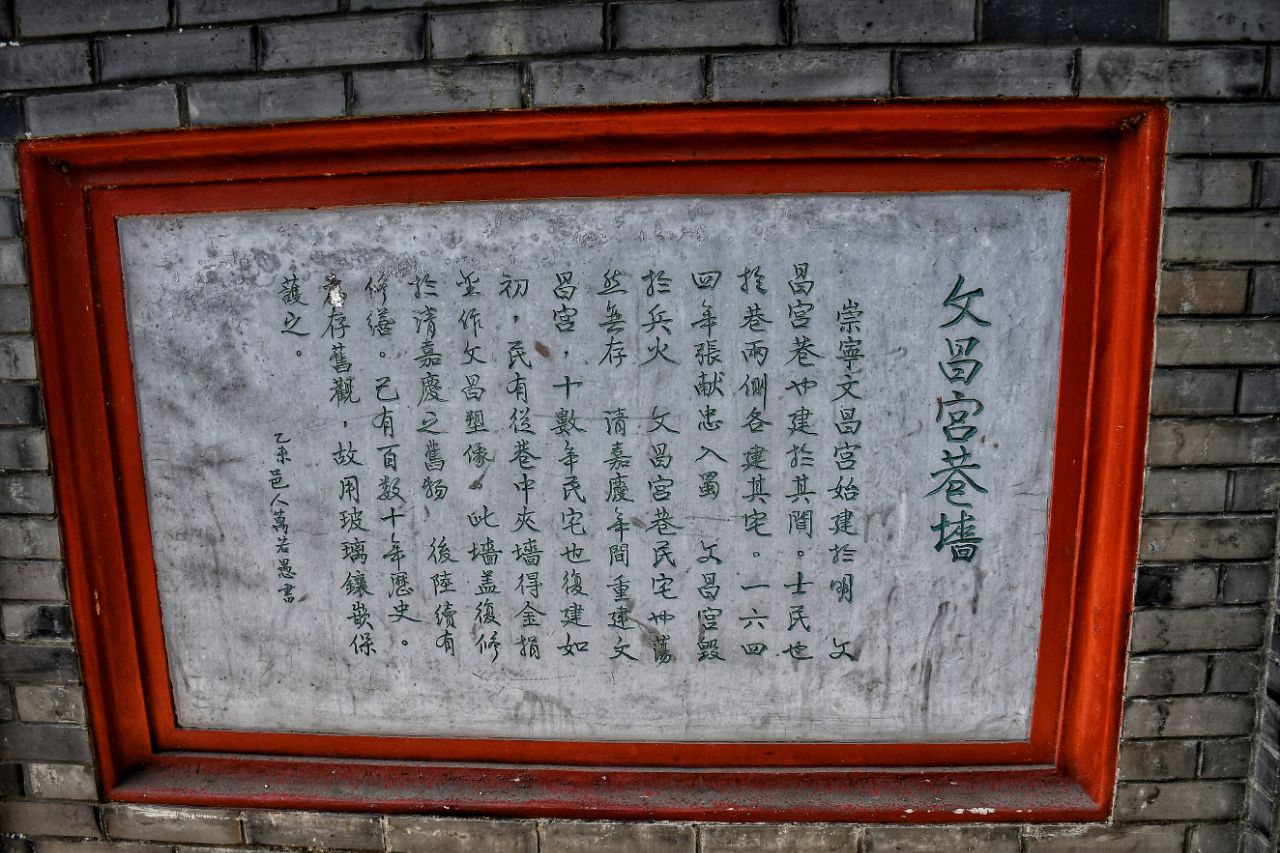 文昌宮巷墻
崇寧文昌宮始建於明 文
昌宮巷也建於其間。士民也
於巷兩側各建其宅。一六四
四年張献忠入蜀 文昌宮毀
於兵火 文昌宮巷民宅也蕩
然無存 清嘉慶年間重建文
昌宮,十數年民宅也復建如
初,民有從巷中夾墻得金捐
並作文昌塑像。此墻盖復修
於清嘉慶之舊物 後陸續有
修繕。已有百數十年歷史。
存舊觀,故用玻璃鑲嵌保
護之。
乙未邑人萬若愚書